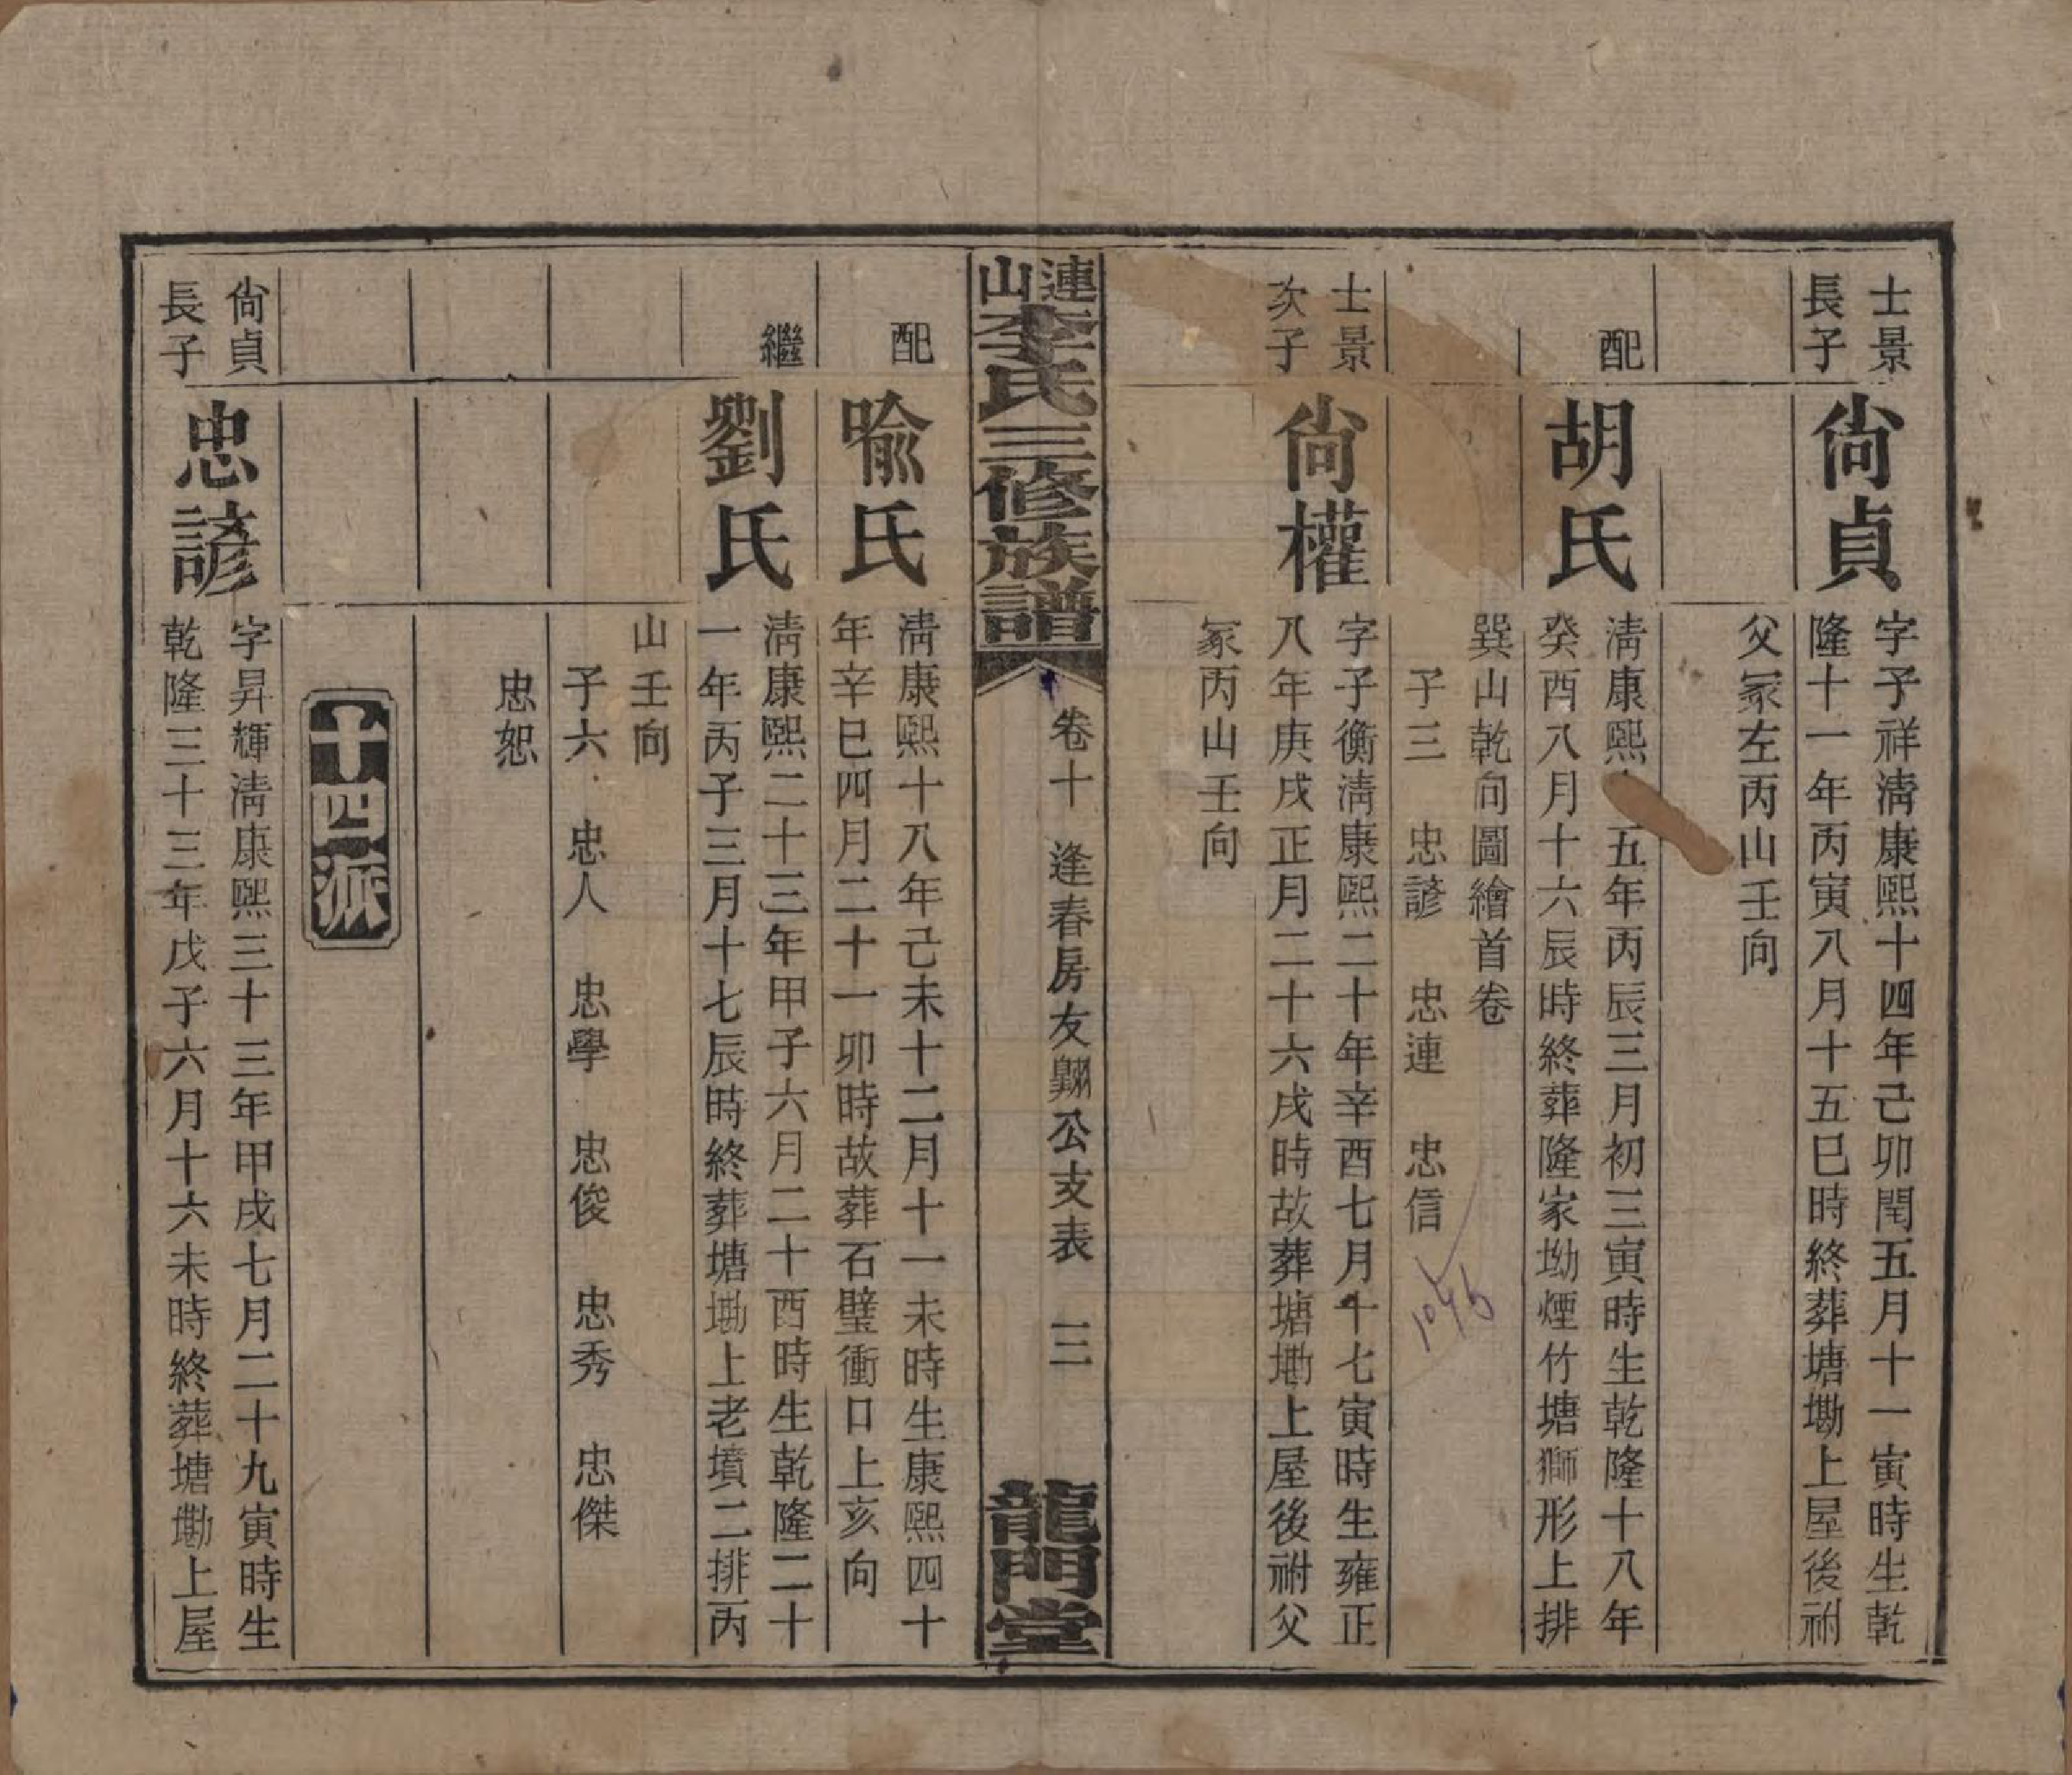 士景
長子
尙貞
字子祥淸康熙十四年己卯閏五月十一寅時生乾
隆十一年丙寅八月十五巳時終葬塘墈上屋後祔
父冢左丙山壬向
配
胡氏
淸康熙五年丙辰三月初三寅時生乾隆十八年
癸酉八月十六辰時終葬隆家坳煙竹塘獅形上排
巽山乾向圖繪首卷
子三 忠諺 忠連 忠信
1046
士景
次子
尙權
字子衡淸康熙二十年辛酉七月十七寅時生雍正
八年庚戌正月二十六戌時故葬塘墈上屋後祔父
冢丙山壬向
連山李氏三修族譜
卷十 逢春房友翺公支表 三
龍門堂
配
喩氏
淸康熙十八年己未十二月十一未時生康熙四十
年辛巳四月二十一卯時故葬石璧衝口上亥向
繼
劉氏
淸康熙二十三年甲子六月二十酉時生乾隆二十
一年丙子三月十七辰時終葬塘墈上老墳二排丙
山壬向
子六 忠人 忠學 忠俊 忠秀 忠傑
忠恕
十四派
尙貞
長子
忠諺
字昇輝淸康熙三十三年甲戌七月二十九寅時生
乾隆三十三年戊子六月十六未時終葬塘墈上屋